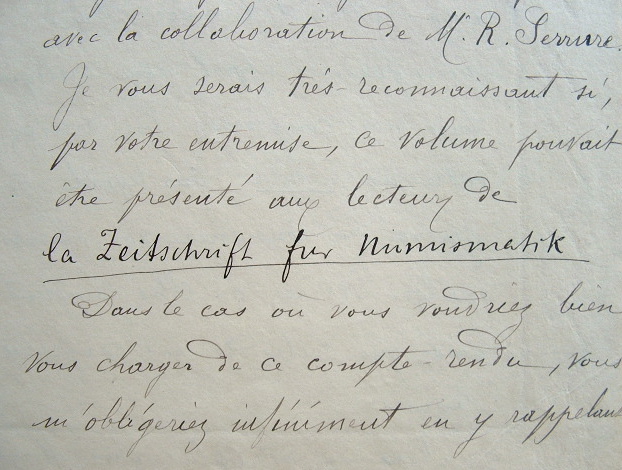 avec la collaboration de Mr. R. Serrure.
Je vous serais très-reconnaissant si,
par votre entremise, ce volume pouvait
être présenté aux lecteurs de
la Zeitschrift fur Numismatik
Dans le cas où vous voudriez bien
vous charger de ce compte-rendu, vous
m'obligeriez infiniment en y rappelant